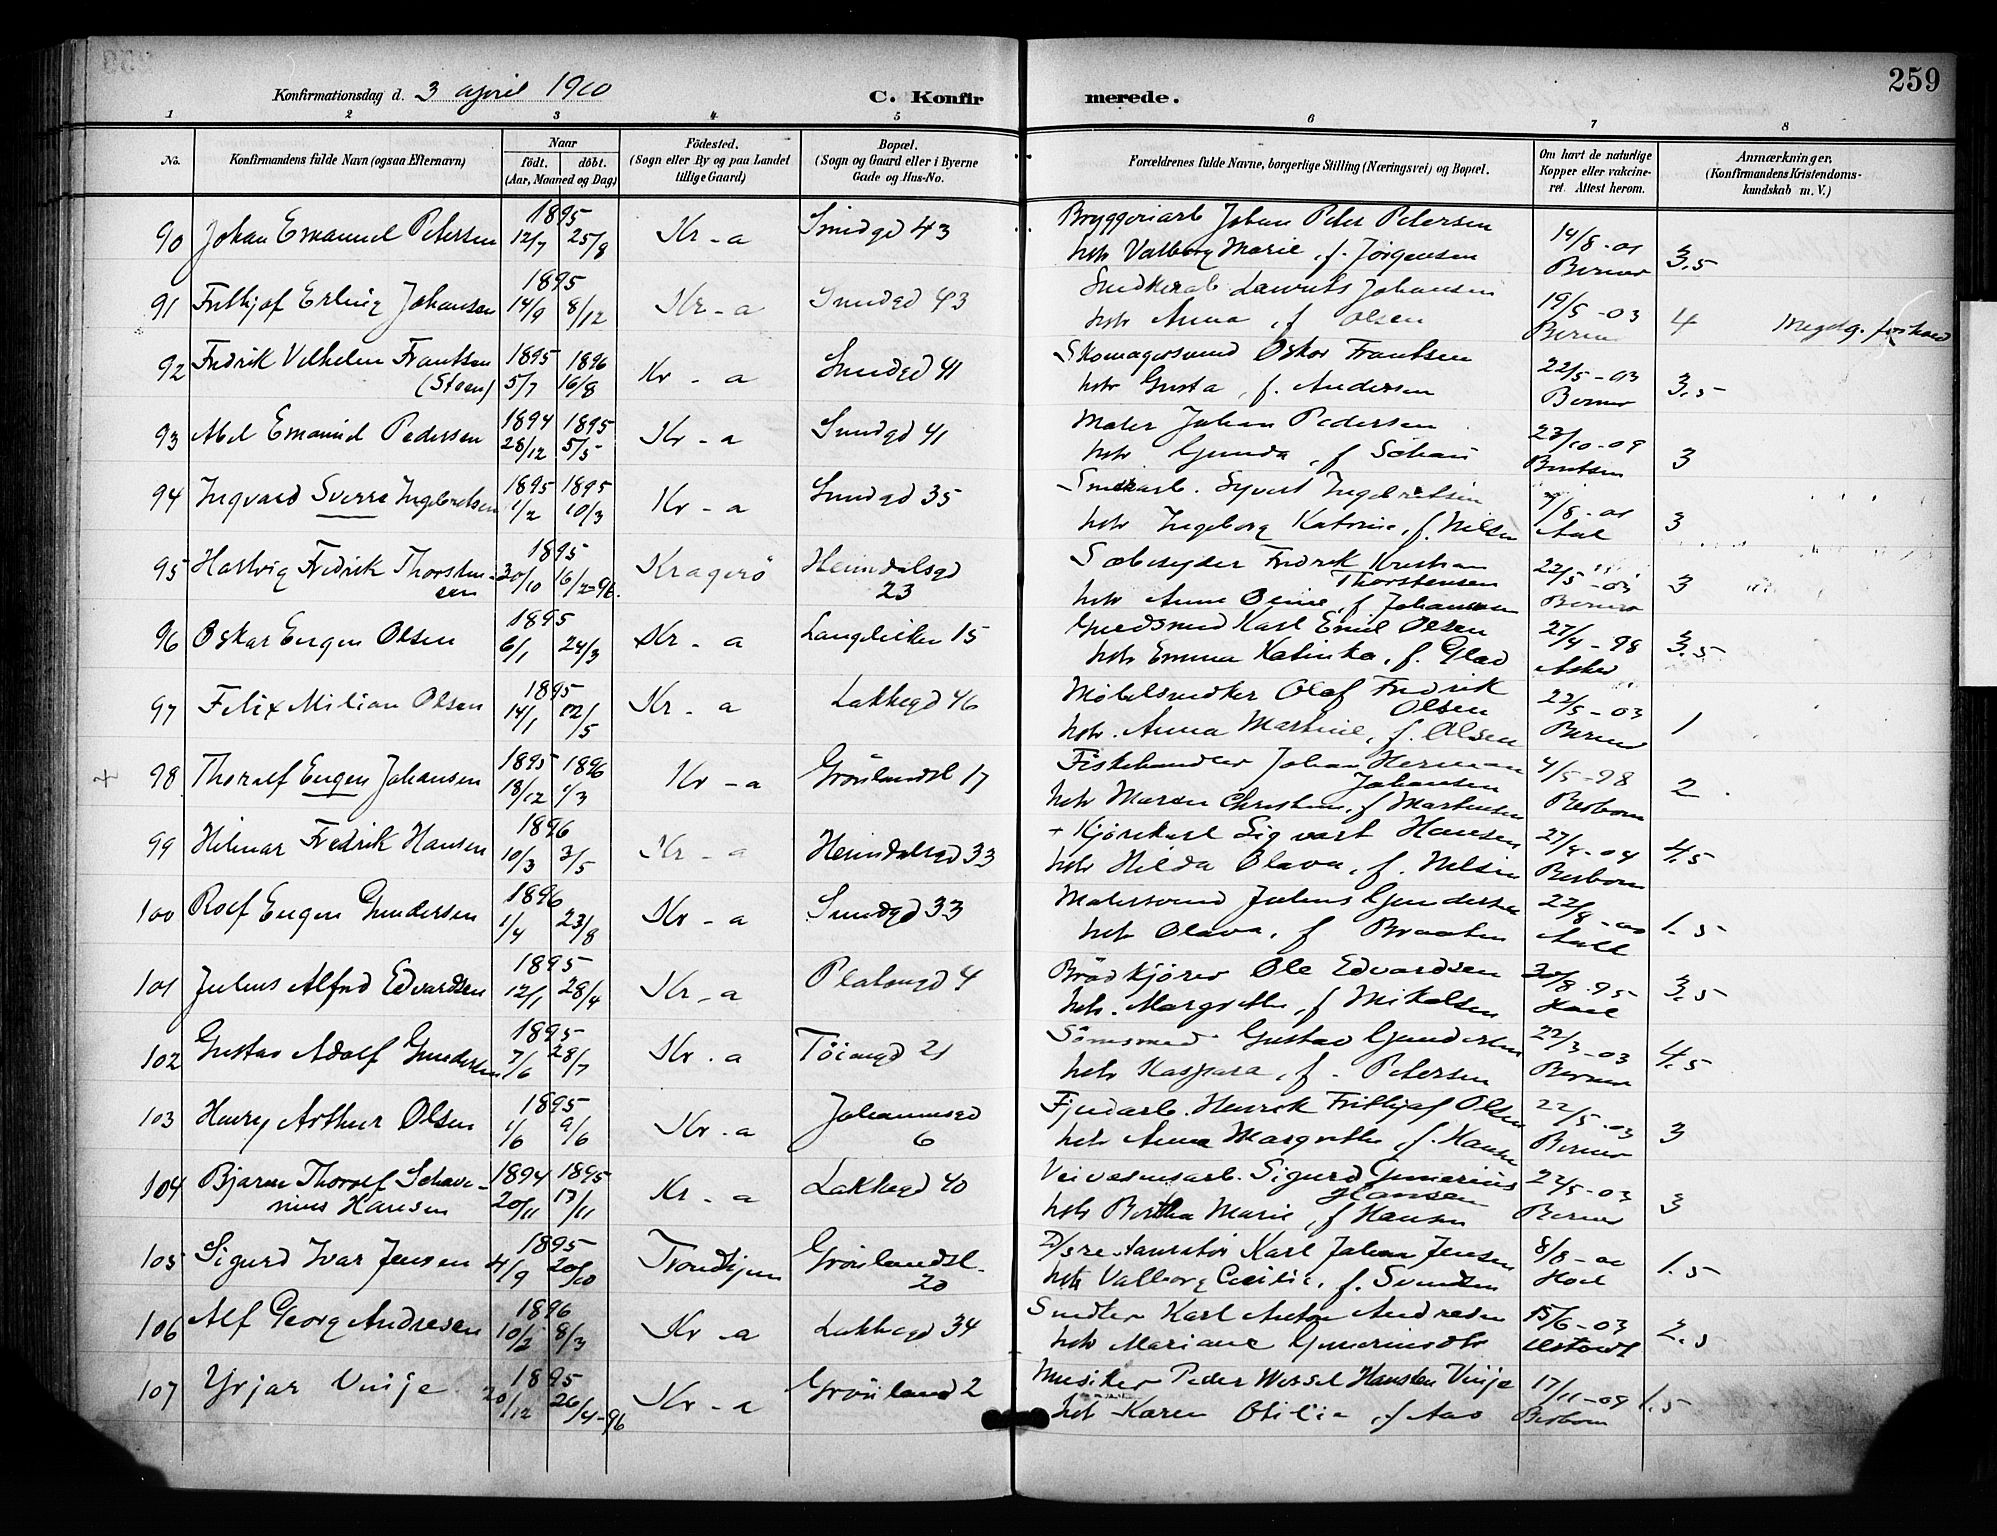 259
Konfirmationsdag d. 3 april 1910
C. Konfirmerede.
1 2 3 4 5 6 7 8
No.
Konfirmandens fulde Navn (ogsaa Efternavn)
Naar
födt. döbt.
(Aar, Maaned og Dag)
Födested.
(Sogn eller By og paa Landet
tillige Gaard)
Bopæl.
(Sogn og Gaard eller i Byerne
Gade og Hus-No.
Forældrenes fulde Navne, borgerlige Stilling (Næringsvei) og Bopæl.
Om havt de naturlige
Kopper eller vaccine-
ret. Attest herom.
Anmærkninger.
(Konfirmandens Kristendoms-
kundskab m. V.)
90 Johan Emanuel Petersen 1895 12/7 25/8 Kr-a Smedgd 43 Bryggeriarb Johan Peter Petersen
hstr Valborg Marie, f. Jörgensen 14/8-01 Berner 3.5
91 Frithjof Erling Johansen 1895 14/9 8/12 Kr-a Smedgd 43 Snedkerarb Laurits Johansen
hstr Anna, f Olsen 19/5-03 Berner 4
92 Fredrik Vilhelm Frantsen 1895 1896 Kr-a Smedgd 41 Skomagersvend Oskar Frantsen
(Steen) 5/7 16/8 hstr Gusta, f. Andersen 22/5-03 Berner 3.5
93 Abel Emanuel Pedersen 1894 1895 28/12 5/5 Kr-a Smedgd 41 Maler Johan Pedersen
hstr Gunda, f 23/10-09 Berntsen 3
94 Ingvald Sverre Ingebretsen 1895 1895 1/2 10/3 Kr-a Smedgd 35 Syvert Ingebretsen
hstr Ingeborg Katrine, f. Nilsen /8-01 Aal 3
95 Hartvig Fredrik Thorsten- 1895 30/10 16/2-96. Kragerö Heimdalsgd Sæbesyder Fredrik Kristian
sen 23 Thorstensen
hstr Anne Oline, f. Johannesen 22/5-03 Berner 3
96 Oskar Eugen Olsen 1895 6/1 24/3 Kr-a Langleiken 15 Karl Emil Olsen
hstr Emma Katinka, f. Glad 27/4-98 Asker 3.5
97 Felix Milian Olsen 1895 14/1 /5 Kr-a Lakkegd 46 Möbelsnedker Olaf Fredrik
Olsen
hstr. Anna Martine, f. Olsen 22/5-03 Berner 1
98 Thoralf Eugen Johansen 1895 1896 18/12 1/3 Kr-a Grönlandsl 17 Fiskehandler Johan Herman
Johansen
hstr Maren Christine, f Martinsen 4/5-98 Berbom 2
99 Hilmar Fredrik Hansen 1896 10/3 3/5 Kr-a Heimdalsgd 33 + Kjörekarl Sigvart Hansen
hstr Hilda Olava, f. Nelsen 27/4-04 Berbom 4.5
100 Rolf Eugen Gundersen 1896 1/4 23/8 Kr-a Smedgd 33 Malersvend Julius Gundersen
hstr Olava, f Braaten 22/8-00 Aall 1.5
101 Julius Alfred Edvardsen 1895 12/1 28/4 Kr-a Platougd 4 Brödkjörer Ole Edvardsen
hstr. Margrethe, f Mikalsen 30/8.95 Hoel 3.5
102 Gustav Adolf Gundersen 1895 7/6 28/7 Kr.a Töiengd 21 Sömsmed Gustav Gundersen
hstr Kaspara, f. Petersen 22/3-03 Berner 4.5
103 Henry Arthur Olsen 1895 1/6 9/6 Kr.a Johannesgd Henrik Frithjof Olsen
6 hstr Anna Margrethe, f. Hansen 22/5.03 Berner 3
104 Bjarne Thoralf Schave- 1894 1895 Kr-a Lakkegd 40 Veivesensarb. Sigurd Gunerius
nius Hansen 20/11 17/11 Hansen
hstr Bertha Marie, f Hansen 22/5-03 Berner 3
105 Sigurd Ivar Jensen 1895 4/9 20/10 Trondhjem Grönlandsl. Karl Johan Jensen
20 hstr Valborg Cecilie, f. Svendsen 8/8-00 Hoel 1.5
106 Alf Georg Andresen 1896 10/2 8/3 Kr-a Lakkegd 34 Snedker Karl Anton Andresen
hstr Mariane Gunerinsdtr 15/6-03 2.5
107 Yrjar Vinje 1895 20/12 26/4-96 Kr-a Grönland 2 Musiker Peder Wessel Hansten Vinje
hstr Karen Otilie, f Aas 17/11-09 Berbom 1.5